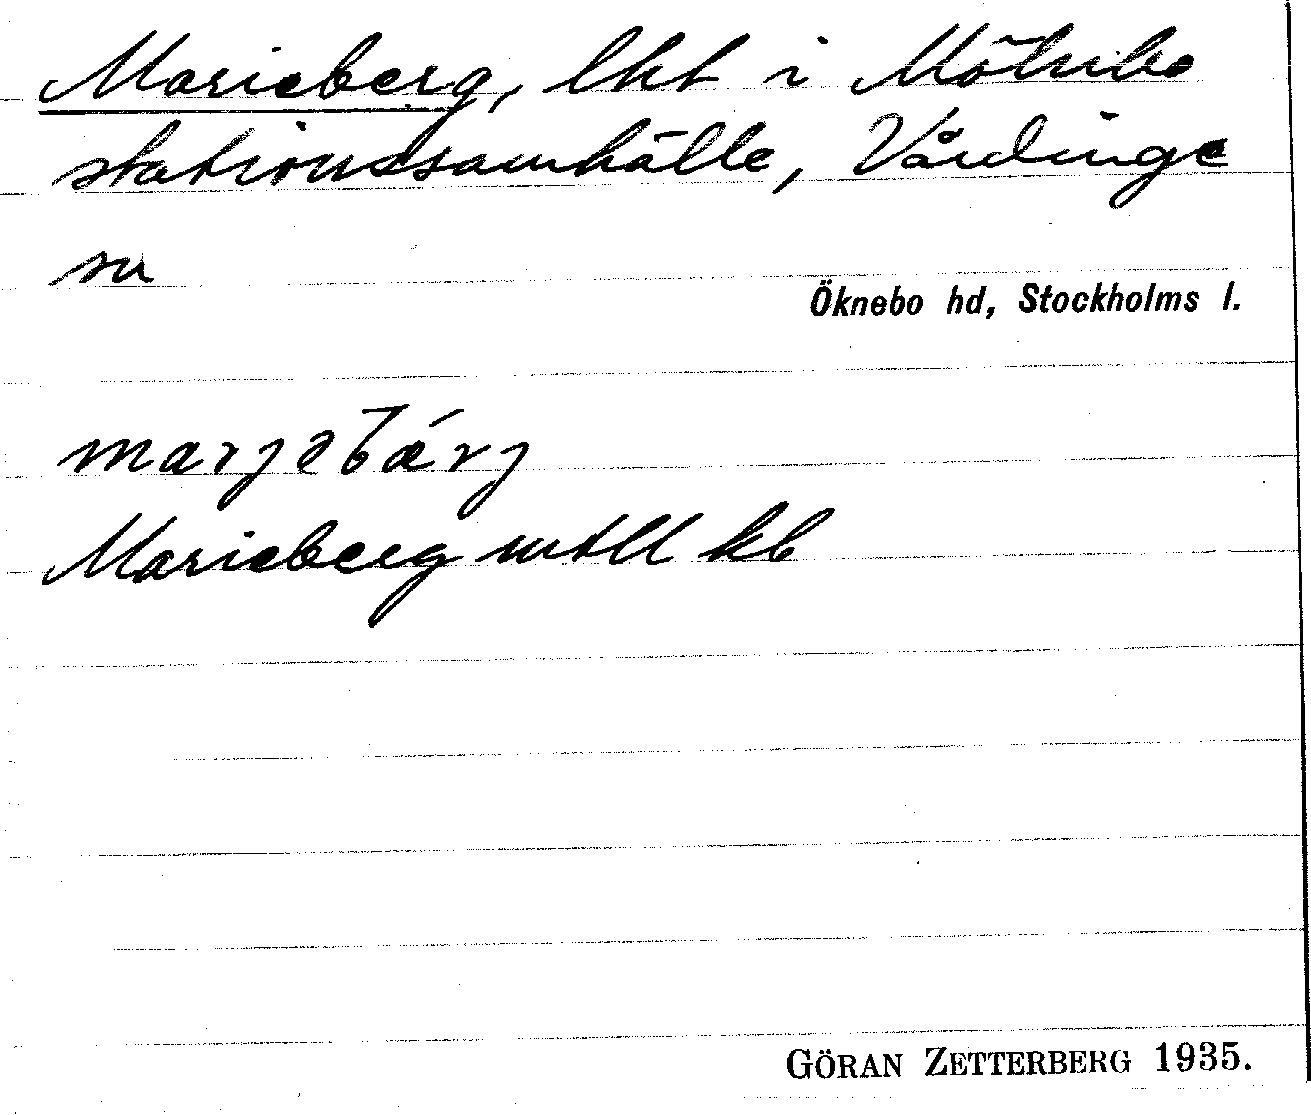 Marieberg, lht i Mölnbo
stationssamhälle, Vårdinge
sn
Öknebo hd, Stockholms l.
marjəbárj
Marieberg mtll kb
GÖRAN ZETTERBERG 1935.